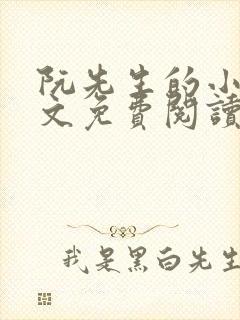 阮先生的小
文免費閱讀
我是黑白先生